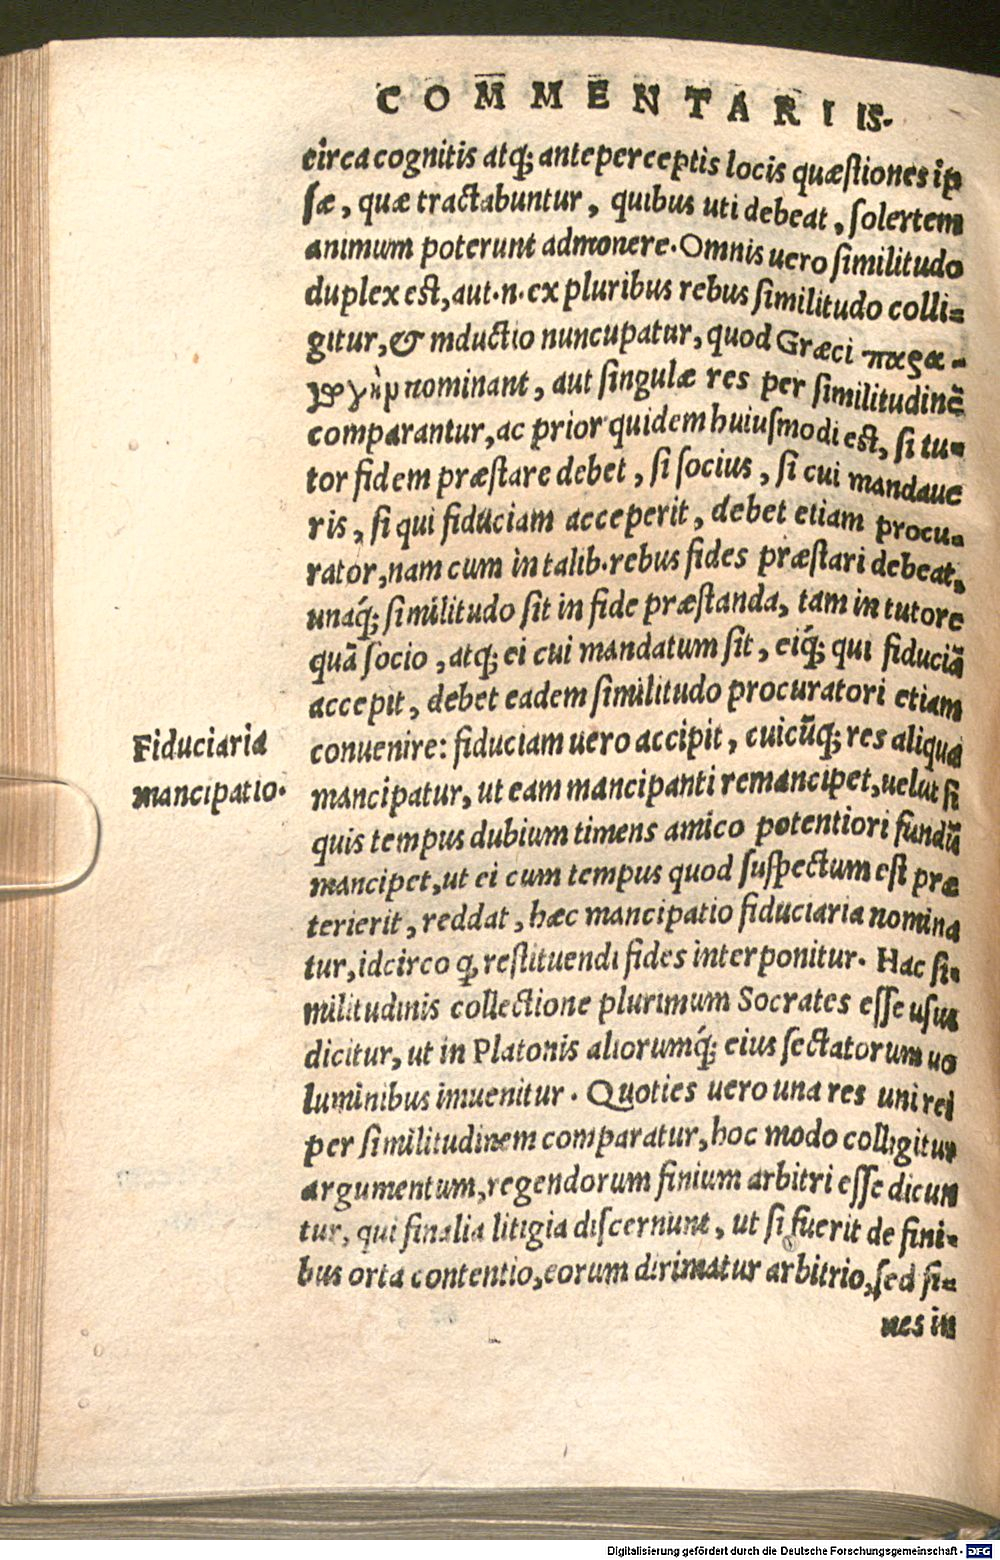 COMMENTARIIS.
circa cognitis atq; anteperceptis locis quæſtiones ip
ſæ, quæ tractabuntur, quibus uti debeat, ſolertem
animum poterunt admonere. Omnis uero ſimilitudo
duplex eſt, aut.n.ex pluribus rebus ſimilitudo colli=
gitur, & inductio nuncupatur, quod Græci παρα-
nominant, aut ſingulæ res per ſimilitudinẽ
comparantur, ac prior quidem huiuſmodi eſt, ſi tu=
tor fidem præſtare debet, ſi ſocius, ſi cui mandaue
ris, ſi qui fiduciam acceperit, debet etiam procu=
rator, nam cum in talib. rebus fides præſtari debeat,
unaq́; ſimilitudo ſit in fide præſtanda, tam in tutore
quã ſocio, atq; ei cui mandatum ſit, eiq́; qui fiduciã
accepit, debet eadem ſimilitudo procuratori etiam
Fiduciaria
mancipatio.
conuenire: fiduciam uero accipit, cuicũq; res aliqua
mancipatur, ut eam mancipanti remancipet, uelut ſi
quis tempus dubium timens amico potentiori fundũ
mancipet, ut ei cum tempus quod ſuſpectum eſt præ
terierit, reddat, hæc mancipatio fiduciaria nomina
tur, idcirco q, reſtituendi fides interponitur. Hac ſi=
militudinis collectione plurimum Socrates eſſe uſus
dicitur, ut in Platonis aliorumq́; eius ſectatorum uo
luminibus inuenitur. Quoties uero una res uni rei
per ſimilitudinem comparatur, hoc modo colligitur
argumentum, regendorum finium arbitri eſſe dicun
tur, qui finalia litigia diſcernunt, ut ſi fuerit de fini=
bus orta contentio, eorum dirimatur arbitrio, ſed fi=
nes in
Digitalisierung gefördert durch die Deutsche Forschungsgemeinschaft - DFG